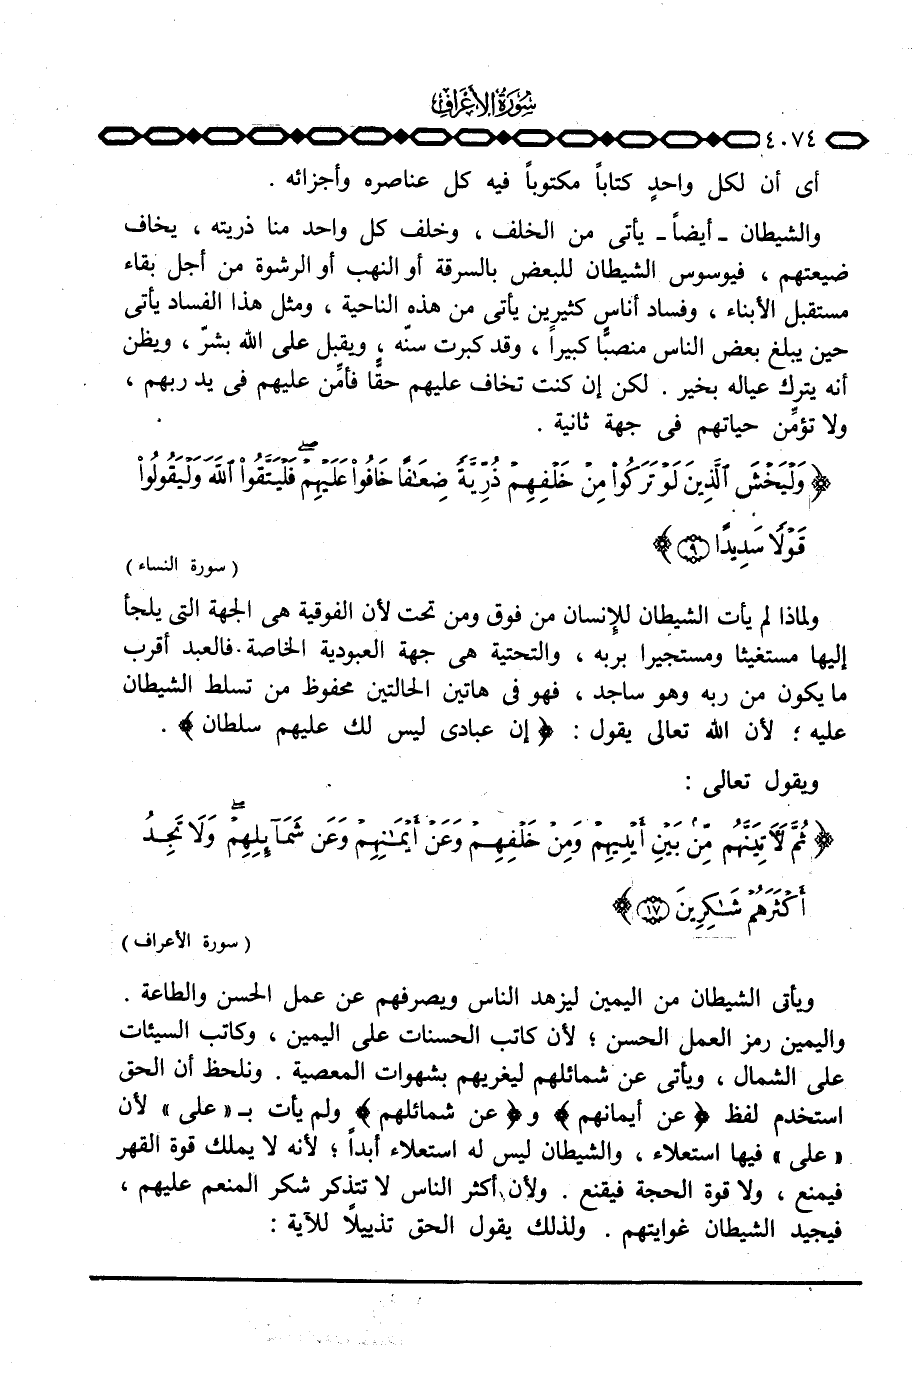 سُورَةُ الأَعْرَافِ
٤٠٧٤
أى أن لكل واحدٍ كتاباً مكتوباً فيه كل عناصره وأجزائه .
والشيطان ـ أيضاً ـ يأتى من الخلف ، وخلف كل واحد منا ذريته ، يخاف
ضيعتهم ، فيوسوس الشيطان للبعض بالسرقة أو النهب أو الرشوة من أجل بقاء
مستقبل الأبناء ، وفساد أناسٍ كثيرين يأتى من هذه الناحية ، ومثل هذا الفساد يأتى
حين يبلغ بعض الناس منصبًّا كبيراً ، وقد كبرت سنّه ، ويقبل على الله بشرّ ، ويظن
أنه يترك عياله بخير . لكن إن كنت تخاف عليهم حقًّا فأمِّن عليهم فى يد ربهم ،
ولا تؤمِّن حياتهم فى جهة ثانية .
﴿ وَلْيَخْشَ ٱلَّذِينَ لَوْ تَرَكُوا۟ مِنْ خَلْفِهِمْ ذُرِّيَّةً ضِعَٰفًا خَافُوا۟ عَلَيْهِمْ ۖ فَلْيَتَّقُوا۟ ٱللَّهَ وَلْيَقُولُوا۟
قَوْلًا سَدِيدًا ﴿٩﴾ ﴾
( سورة النساء )
ولماذا لم يأت الشيطان للإنسان من فوق ومن تحت لأن الفوقية هى الجهة التى يلجأ
إليها مستغيثا ومستجيرا بربه ، والتحتية هى جهة العبودية الخاصة . فالعبد أقرب
ما يكون من ربه وهو ساجد ، فهو فى هاتين الحالتين محفوظ من تسلط الشيطان
عليه ؛ لأن الله تعالى يقول : ﴿ إن عبادى ليس لك عليهم سلطان ﴾ .
ويقول تعالى :
﴿ ثُمَّ لَءَاتِيَنَّهُم مِّنۢ بَيْنِ أَيْدِيهِمْ وَمِنْ خَلْفِهِمْ وَعَنْ أَيْمَٰنِهِمْ وَعَن شَمَآئِلِهِمْ ۖ وَلَا تَجِدُ
أَكْثَرَهُمْ شَٰكِرِينَ ﴿١٧﴾ ﴾
( سورة الأعراف )
ويأتى الشيطان من اليمين ليزهد الناس ويصرفهم عن عمل الحسن والطاعة .
واليمين رمز العمل الحسن ؛ لأن كاتب الحسنات على اليمين ، وكاتب السيئات
على الشمال ، ويأتى عن شمائلهم ليغريهم بشهوات المعصية . ونلحظ أن الحق
استخدم لفظ ﴿ عن أيمانهم ﴾ و ﴿ عن شمائلهم ﴾ ولم يأت بـ « على » لأن
« على » فيها استعلاء ، والشيطان ليس له استعلاء أبداً ؛ لأنه لا يملك قوة القهر
فيمنع ، ولا قوة الحجة فيقنع . ولأن أكثر الناس لا تتذكر شكر المنعم عليهم ،
فيجيد الشيطان غوايتهم . ولذلك يقول الحق تذييلاً للآية :